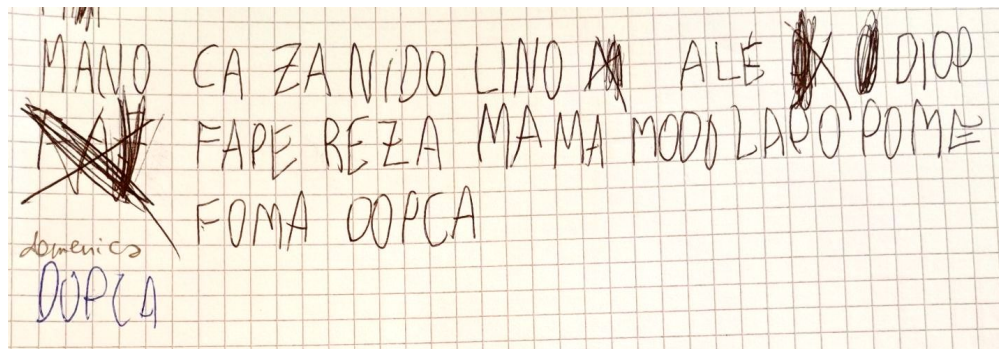 MANO CA ZA NIDO LINO ALE DIOP
FAPE REZA MAMA MODO LAPO POME
FOMA DOPCA
domenica
DOPCA